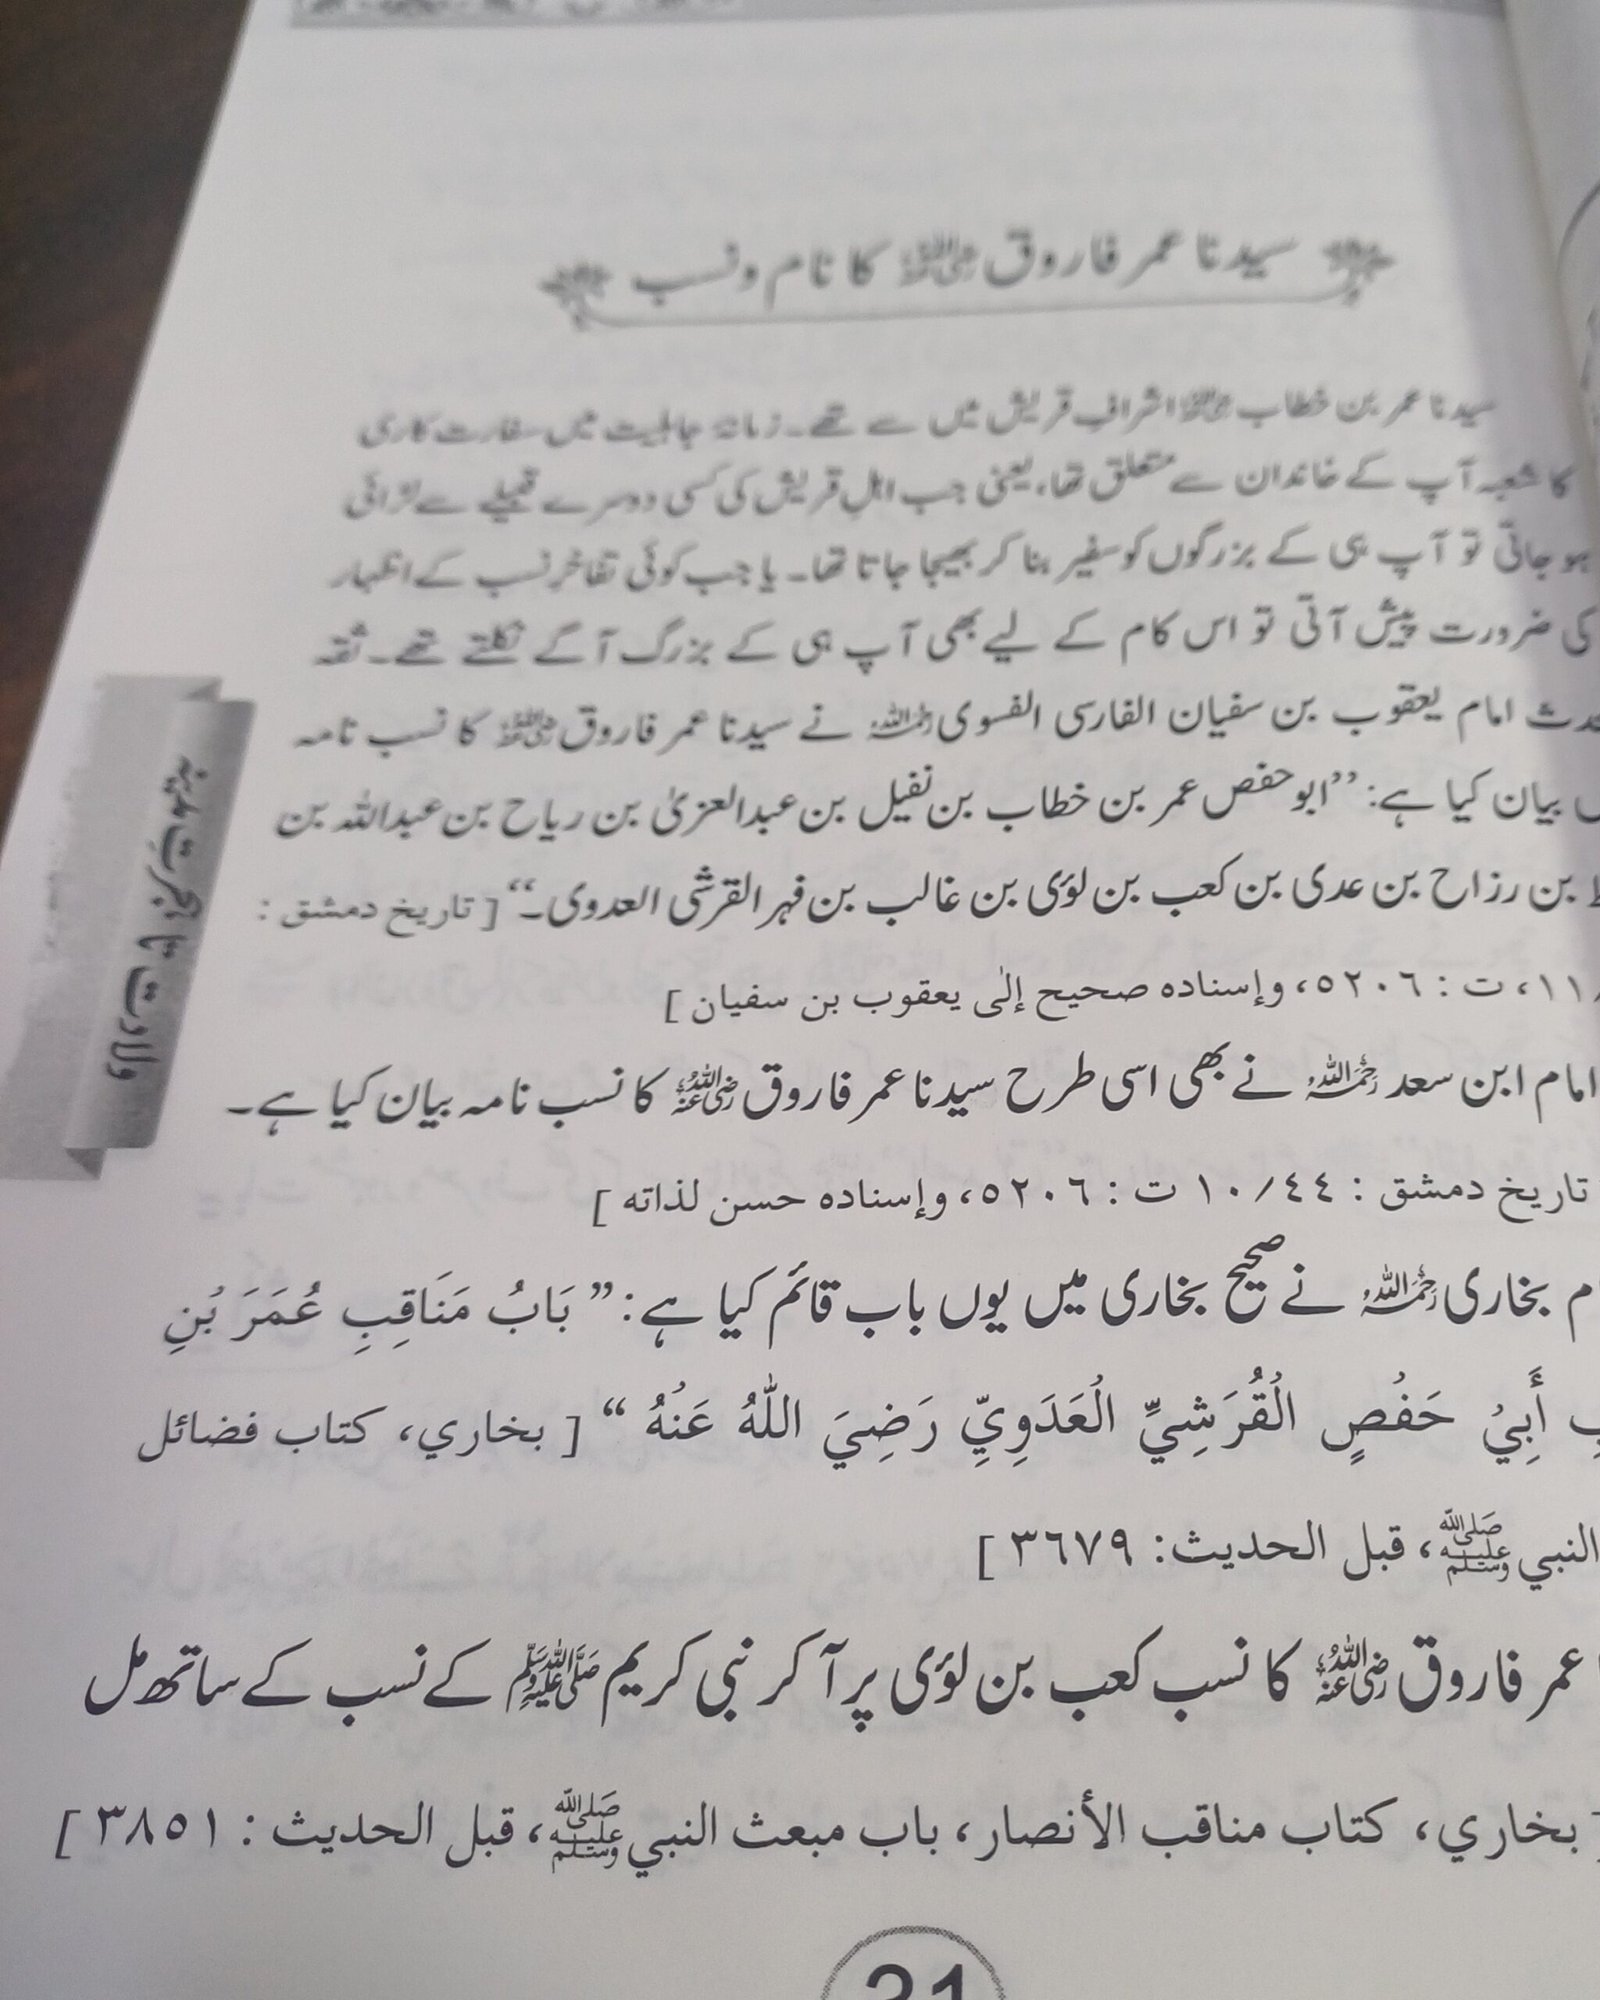 سیدنا عمر فاروق رضی اللہ عنہ کا نام و نسب
سیدنا عمر بن خطاب رضی اللہ عنہ اشرافِ قریش میں سے تھے۔ زمانۂ جاہلیت میں سفارت کاری
کا شعبہ آپ کے خاندان سے متعلق تھا، یعنی جب اہلِ قریش کی کسی دوسرے قبیلے سے لڑائی
ہو جاتی تو آپ ہی کے بزرگوں کو سفیر بنا کر بھیجا جاتا تھا۔ یا جب کوئی تفاخرِ نسب کے اظہار
کی ضرورت پیش آتی تو اس کام کے لیے بھی آپ ہی کے بزرگ آگے نکلتے تھے۔ ثقہ
امام یعقوب بن سفیان الفارسی الفسوی رحمہ اللہ نے سیدنا عمر فاروق رضی اللہ عنہ کا نسب نامہ
بیان کیا ہے: ’’ابو حفص عمر بن خطاب بن نفیل بن عبدالعزیٰ بن ریاح بن عبداللہ بن
بن رزاح بن عدی بن کعب بن لؤی بن غالب بن فہر القرشی العدوی۔‘‘ [ تاریخ دمشق :
١١، ت : ٥٢٠٦، وإسناده صحيح إلٰى يعقوب بن سفيان ]
امام ابن سعد رحمہ اللہ نے بھی اسی طرح سیدنا عمر فاروق رضی اللہ عنہ کا نسب نامہ بیان کیا ہے۔
تاريخ دمشق : ٤٤/١٠ ت : ٥٢٠٦، وإسناده حسن لذاته ]
بخاری رحمہ اللہ نے صحیح بخاری میں یوں باب قائم کیا ہے: ’’ بَابُ مَنَاقِبِ عُمَرَ بْنِ
أَبِيْ حَفْصٍ الْقُرَشِيِّ الْعَدَوِيِّ رَضِيَ اللّٰهُ عَنْهُ ‘‘ [ بخاري، كتاب فضائل
النبي ﷺ، قبل الحديث: ٣٦٧٩ ]
عمر فاروق رضی اللہ عنہ کا نسب کعب بن لؤی پر آ کر نبی کریم ﷺ کے نسب کے ساتھ مل
بخاري، كتاب مناقب الأنصار، باب مبعث النبي ﷺ، قبل الحديث : ٣٨٥١ ]
ولادت تا ہجرتِ مدینہ
31